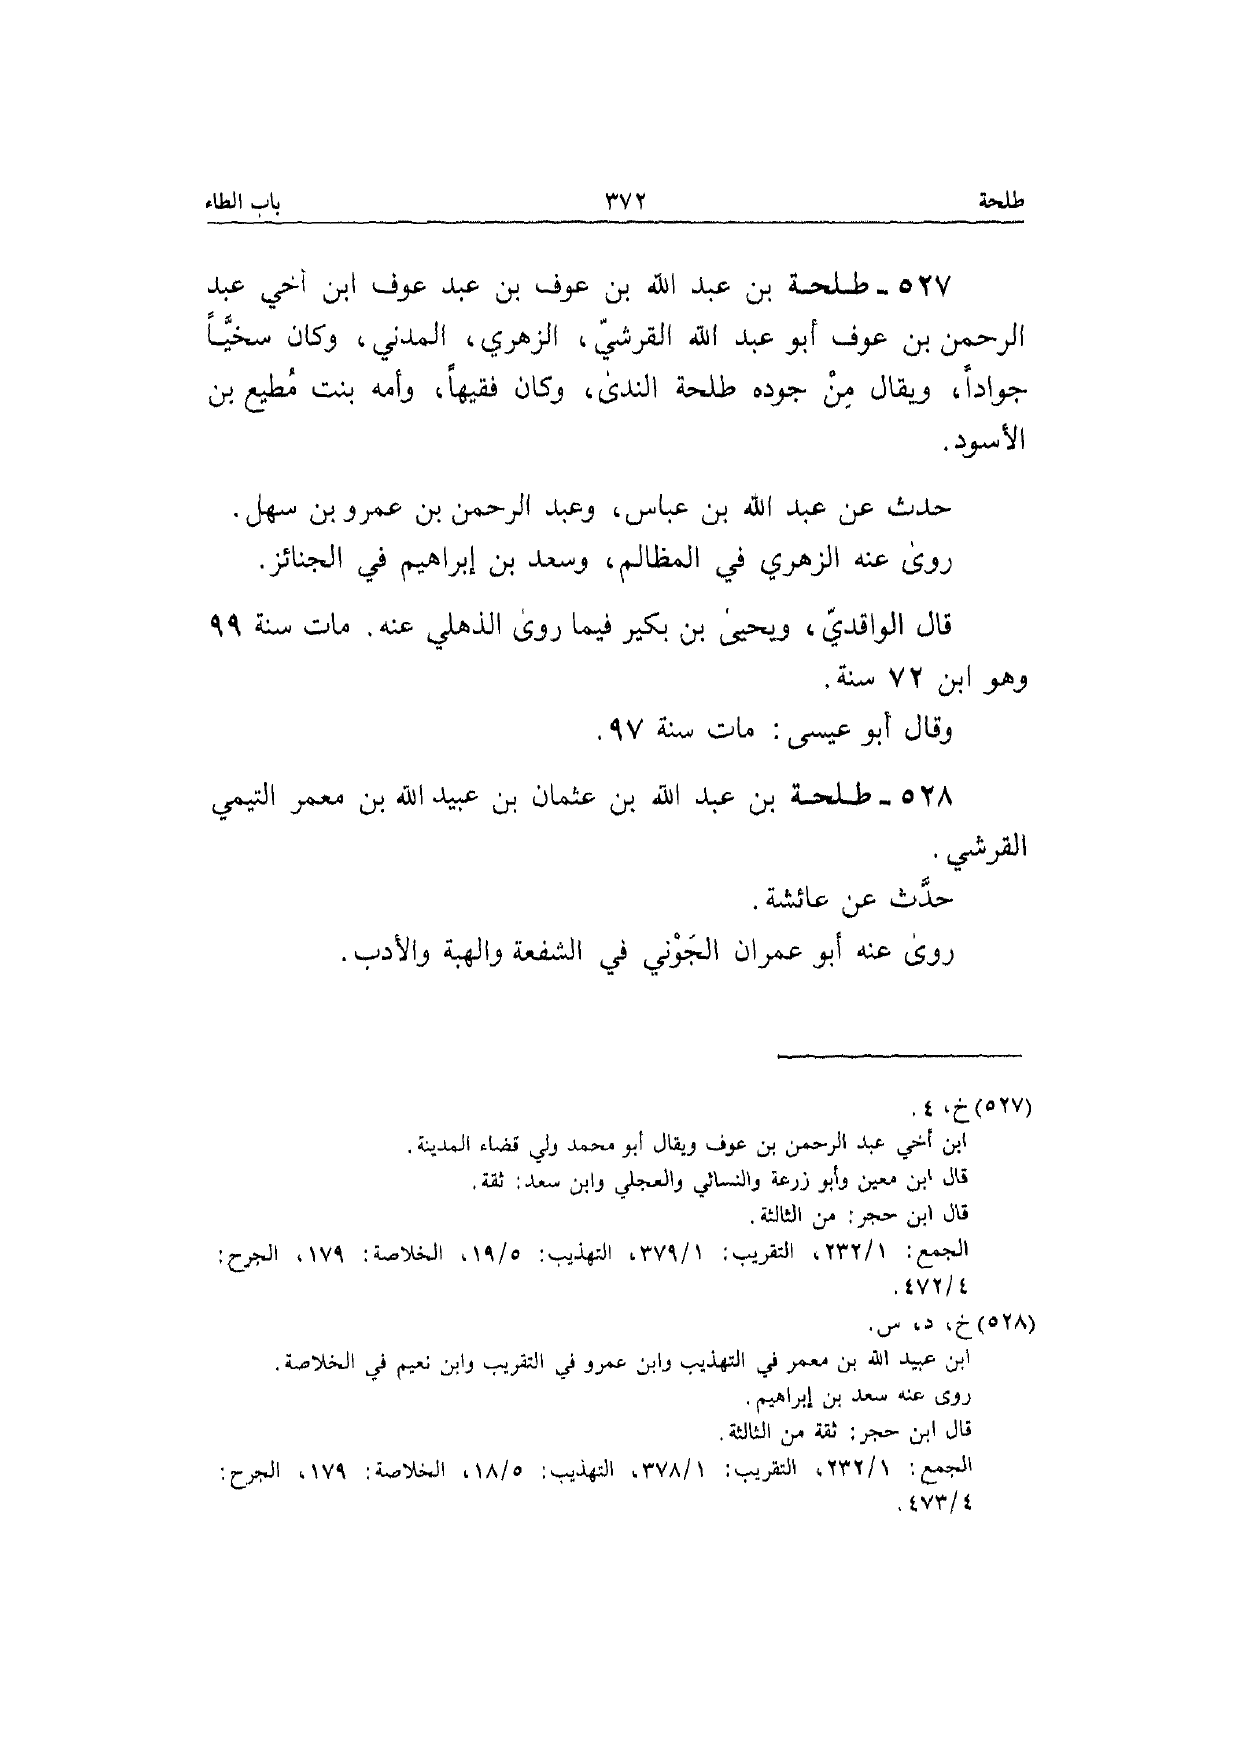 طلحة ٣٧٢ باب الطاء
٥٢٧ - طلحة بن عبد الله بن عوف بن عبد عوف ابن أخي عبد
الرحمن بن عوف أبو عبد الله القرشيّ، الزهري، المدني، وكان سخيًّاً
جواداً، ويقال مِنْ جوده طلحة الندىٰ، وكان فقيهاً، وأمه بنت مُطيع بن
الأسود.
حدث عن عبد الله بن عباس، وعبد الرحمن بن عمرو بن سهل.
روىٰ عنه الزهري في المظالم، وسعد بن إبراهيم في الجنائز.
قال الواقديّ، ويحيىٰ بن بكير فيما روىٰ الذهلي عنه. مات سنة ٩٩
وهو ابن ٧٢ سنة.
وقال أبو عيسى: مات سنة ٩٧.
٥٢٨ - طلحة بن عبد الله بن عثمان بن عبيد الله بن معمر التيمي
القرشي.
حدَّث عن عائشة.
روىٰ عنه أبو عمران الجَوْني في الشفعة والهبة والأدب.
(٥٢٧) خ، ٤.
ابن أخي عبد الرحمن بن عوف ويقال أبو محمد ولي قضاء المدينة.
قال ابن معين وأبو زرعة والنسائي والعجلي وابن سعد: ثقة.
قال ابن حجر: من الثالثة.
الجمع: ٢٣٢/١، التقريب: ٣٧٩/١، التهذيب: ١٩/٥، الخلاصة: ١٧٩، الجرح:
٤٧٢/٤.
(٥٢٨) خ، د، س.
ابن عبيد الله بن معمر في التهذيب وابن عمرو في التقريب وابن نعيم في الخلاصة.
روى عنه سعد بن إبراهيم.
قال ابن حجر: ثقة من الثالثة.
الجمع: ٢٣٢/١، التقريب: ٣٧٨/١، التهذيب: ١٨/٥، الخلاصة: ١٧٩، الجرح:
٤٧٣/٤.